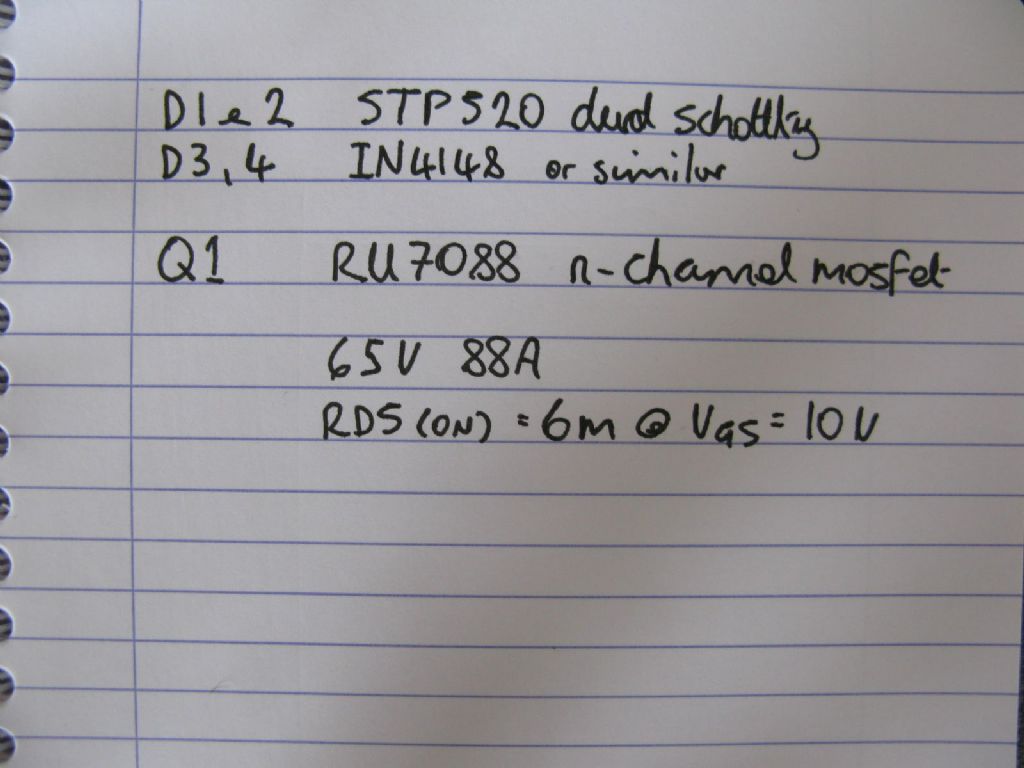 D1 e 2 STP520 dual schottky
D3,4 IN4148 or similar
Q1 RU7088 n-channel mosfet
65V 88A
RDS(ON) = 6m @ VGS = 10V